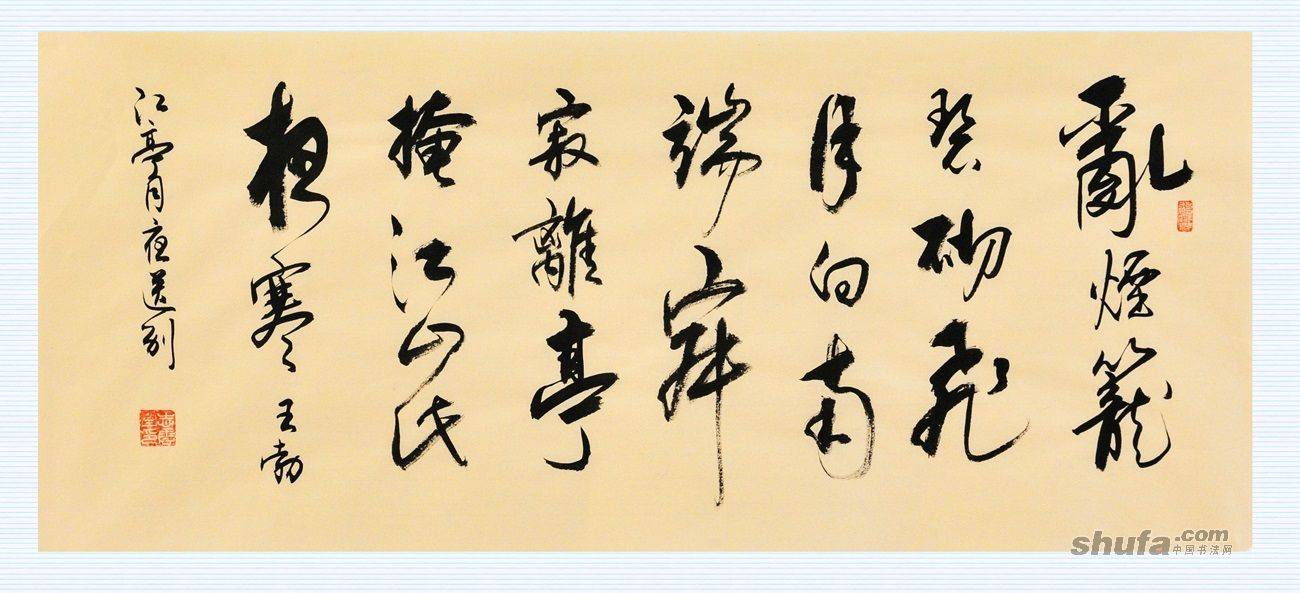 亂煙籠
碧砌飛
月向南
端寂
寂離亭
掩江山此
夜寒 王勃
江亭月夜送别
shufa.com
中国书法网